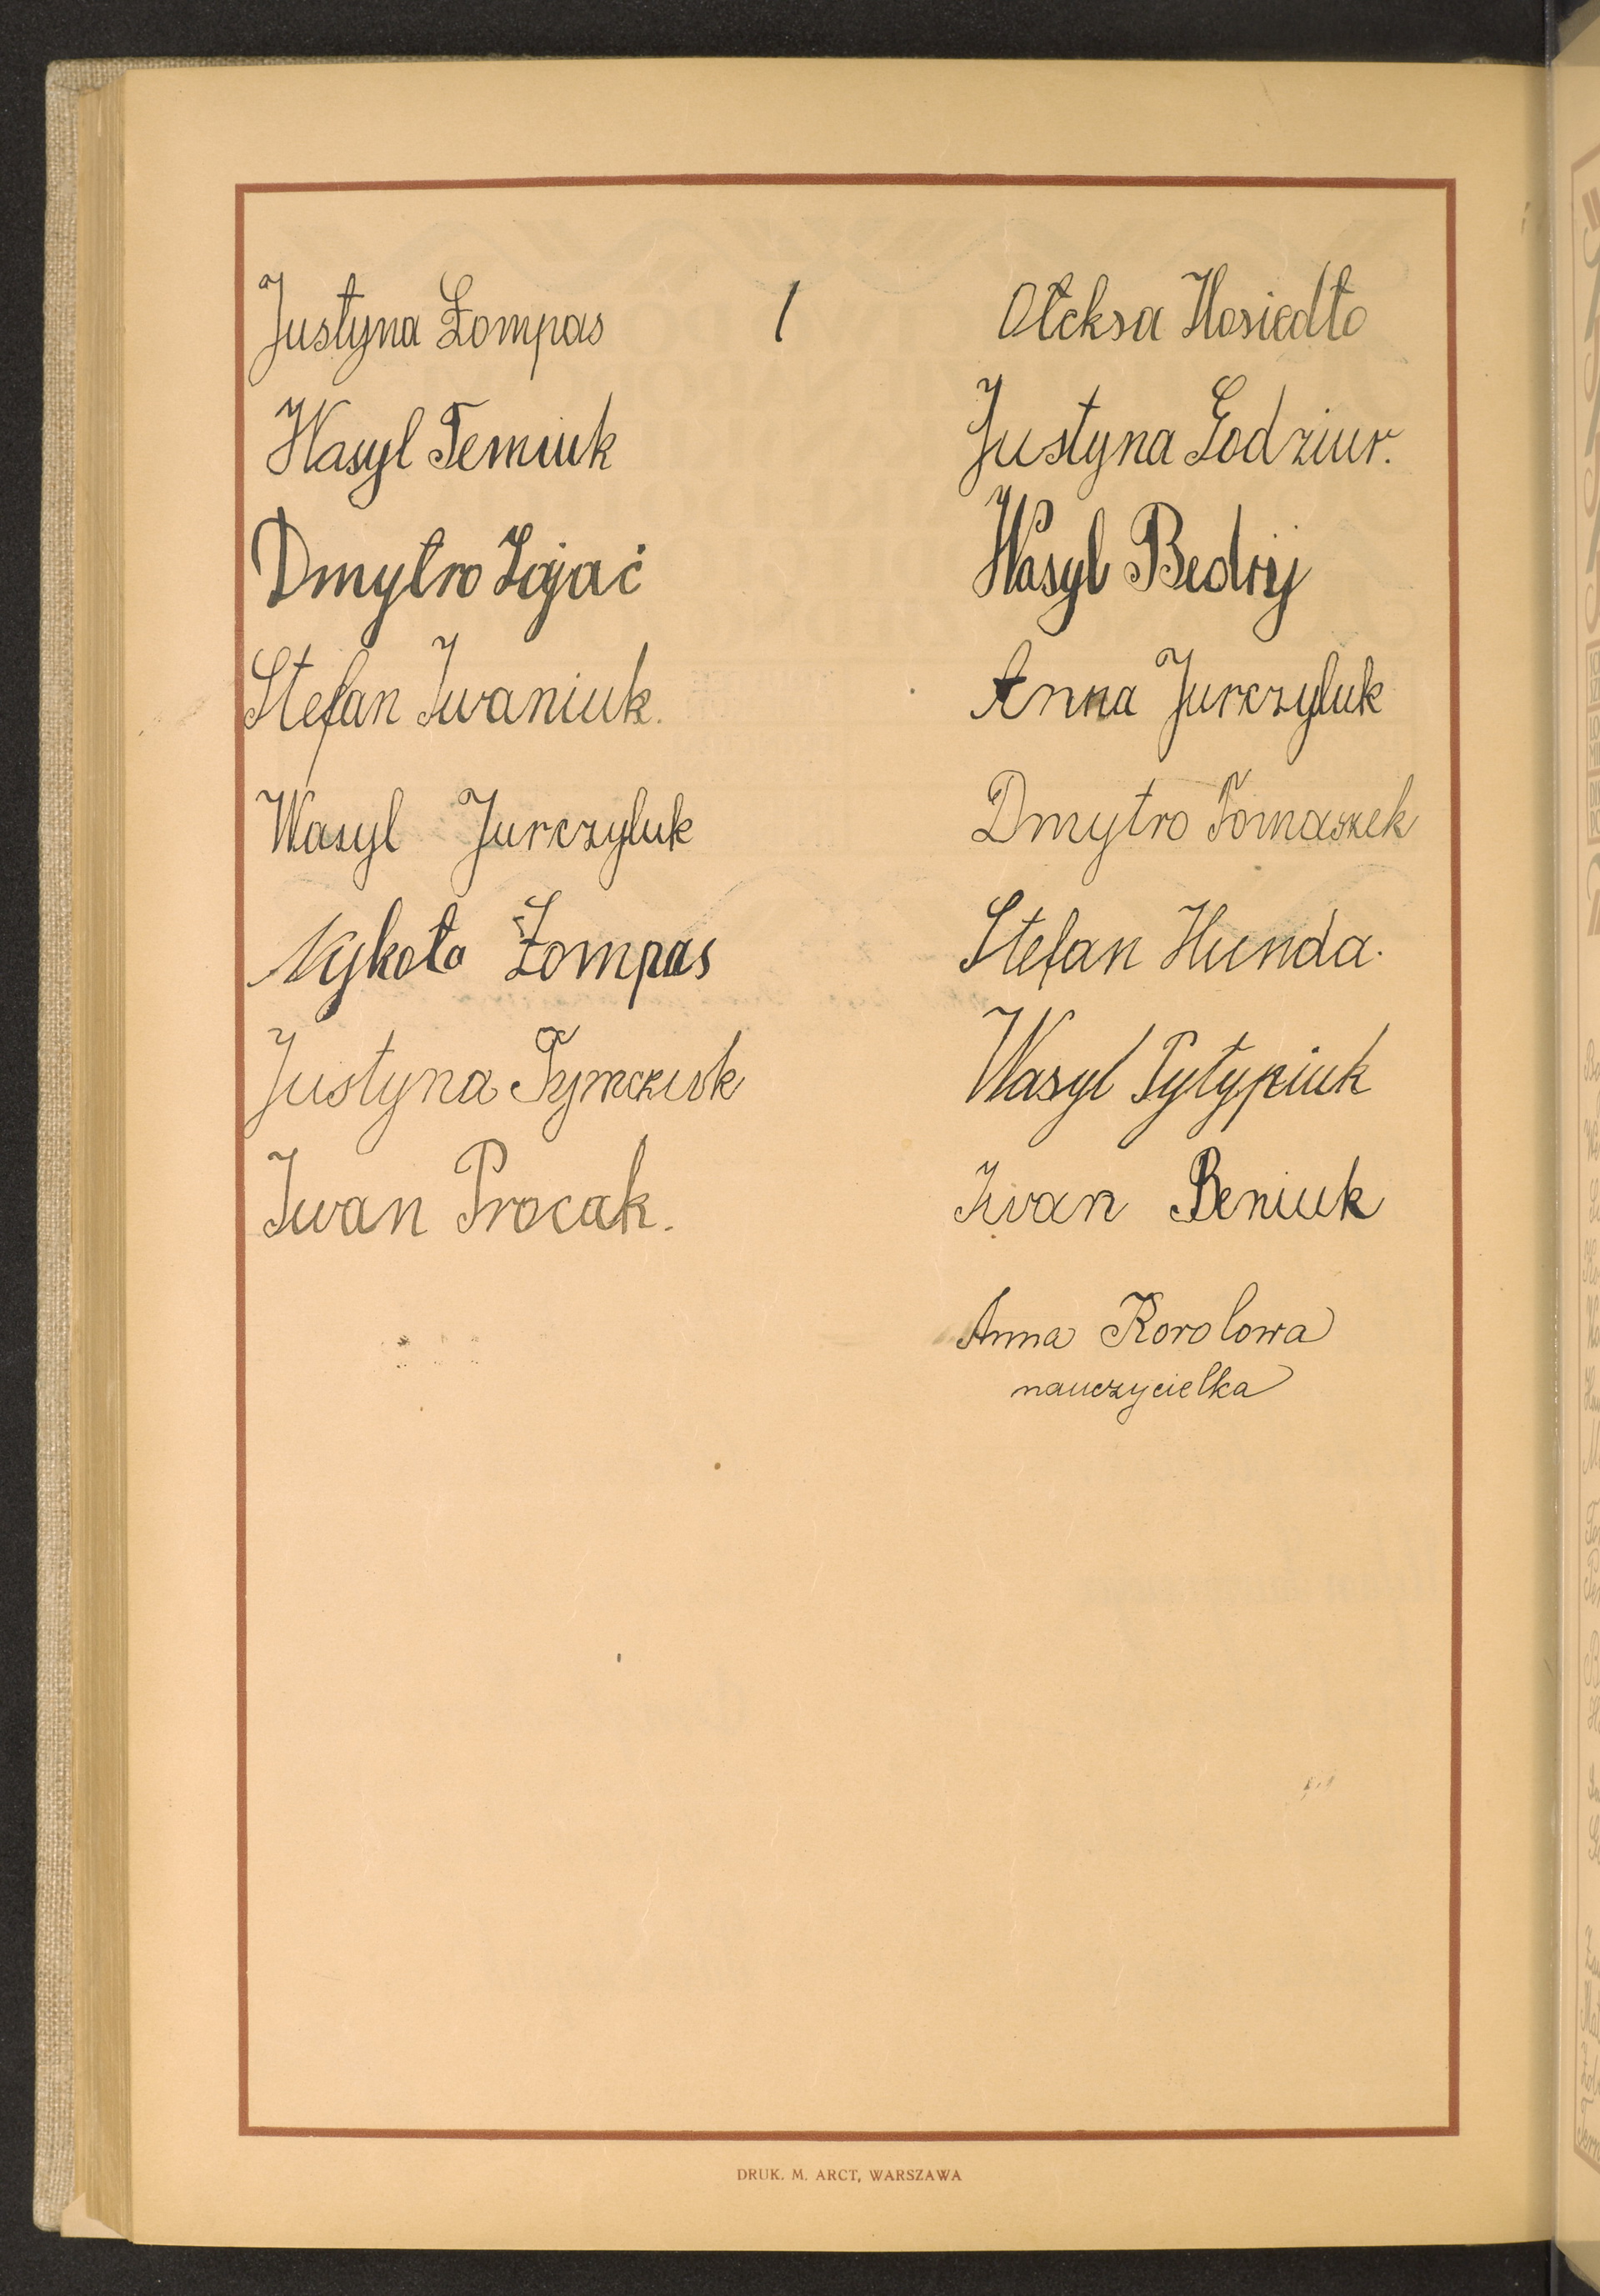 Justyna Łompas
Wasyl Temiuk
Dmytro Zająć
Stefan Iwaniuk.
Wasyl Jurczyluk
Nykoła Łompas
Justyna Tymczuk
Iwan Procak.
Ołeksa Hosiedło
Justyna Godziur.
Wasyl Bedrij
Anna Jurczyluk
Dmytro Tomaszek
Stefan Hunda.
Wasyl Pyłypiuk
Iwan Beniuk
Anna Korolowa
nauczycielka
DRUK. M. ARCT, WARSZAWA